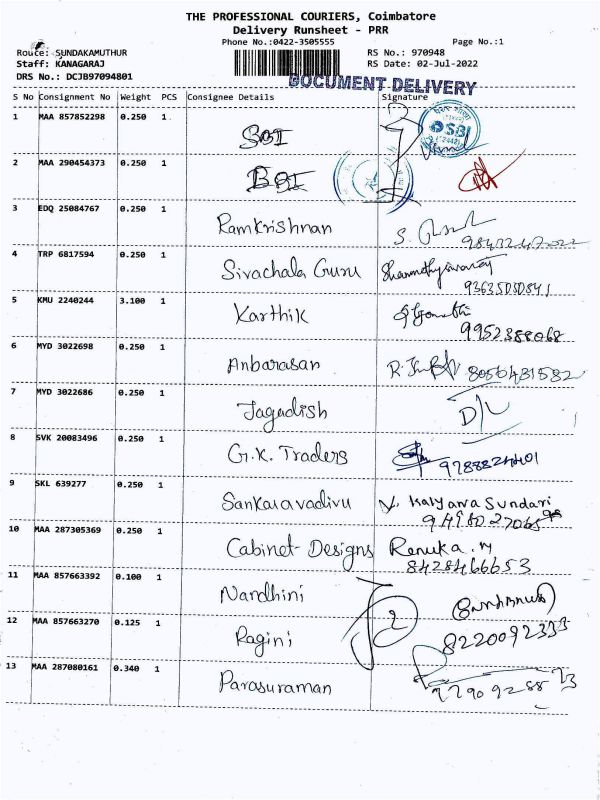 THE PROFESSIONAL COURIERS, Coimbatore
Delivery Runsheet - PRR
Phone No.:0422-3505555 Page No.:1
Route: SUNDAKAMUTHUR RS No.: 970948
Staff: KANAGARAJ RS Date: 02-Jul-2022
DRS No.: DCJB97094801
DOCUMENT DELIVERY
S No Consignment No Weight PCS Consignee Details Signature
1 MAA 857852298 0.250 1 SBI
SBI
2 MAA 290454373 0.250 1
3 EDQ 25084767 0.250 1 Ramkrishnan
4 TRP 6817594 0.250 1 Sivachala Guru
9363505841
5 KMU 2240244 3.100 1 Karthik
9952388068
6 MYD 3022698 0.250 1 Anbarasan 8056481582
7 MYD 3022686 0.250 1 Jagadish D/L
8 SVK 20083496 0.250 1 G.K. Traders
9 SKL 639277 0.250 1 Sankaravadivu V. Kalyana Sundari
10 MAA 287305369 0.250 1 Cabinet Designs Renuka.M
8428466653
11 MAA 857663392 0.100 1 Nandhini
2
12 MAA 857663270 0.125 1 Ragini 8220092333
13 MAA 287080161 0.340 1 Parasuraman